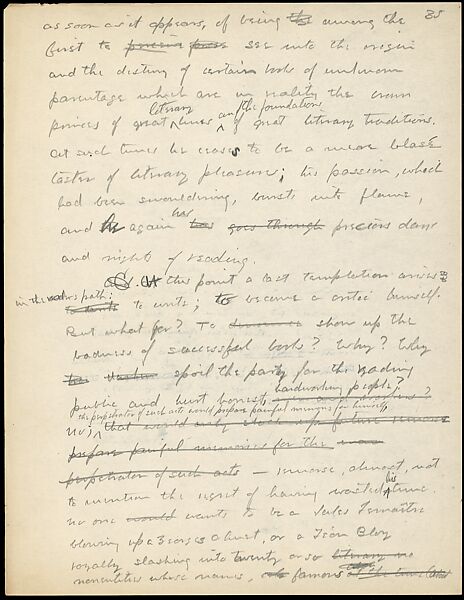 35
as soon as it appears, of being the among the
first to perceive guess see into the origin
and the destiny of certain books of unknown
parentage which are in reality the crown
princes of great literary lines and the foundations of great literary traditions.
At such times he ceases to be a mere blasé
taster of literary pleasures; his passion, which
had been smouldering, bursts into flame,
and he again has goes through precious days
and nights of reading.
At this point a last temptation arises
in the reader's path:
to write; to become a critic himself.
But what for? To show up the
badness of successful books? Why? Why
spoil the party for the reading
public and hurt honest, hardworking people?
the perpetrator of such acts would prepare painful memories for himself,
No; that would only
prepare painful memories for the
perpetrator of such acts — remorse, almost, not
to mention the regret of having wasted his time.
no one would wants to be a Jules Lemaître
blowing up a Georges Ohnet, or a Léon Bloy
royally slashing into twenty or so literary
nonentities whose names, famous